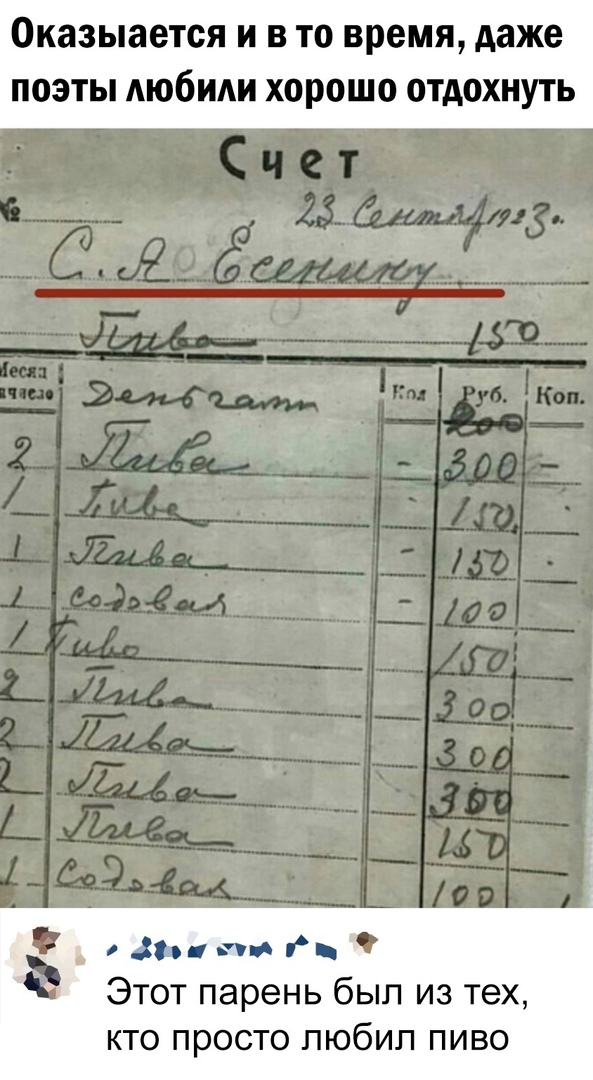 Оказыается и в то время, даже
поэты любили хорошо отдохнуть
Счет
№ 23 Сентября 1923 г.
С. А Есенину
Пива 150
Месяц и число Деньгами Кол Руб. Коп.
2 Пива - 300 -
1 Пива 150
1 Пива - 150 -
1 содовая - 100
1 Пиво 150
2 Пива 300
2 Пива 300
2 Пива 300
1 Пива 150
1 Содовая 100
Этот парень был из тех,
кто просто любил пиво